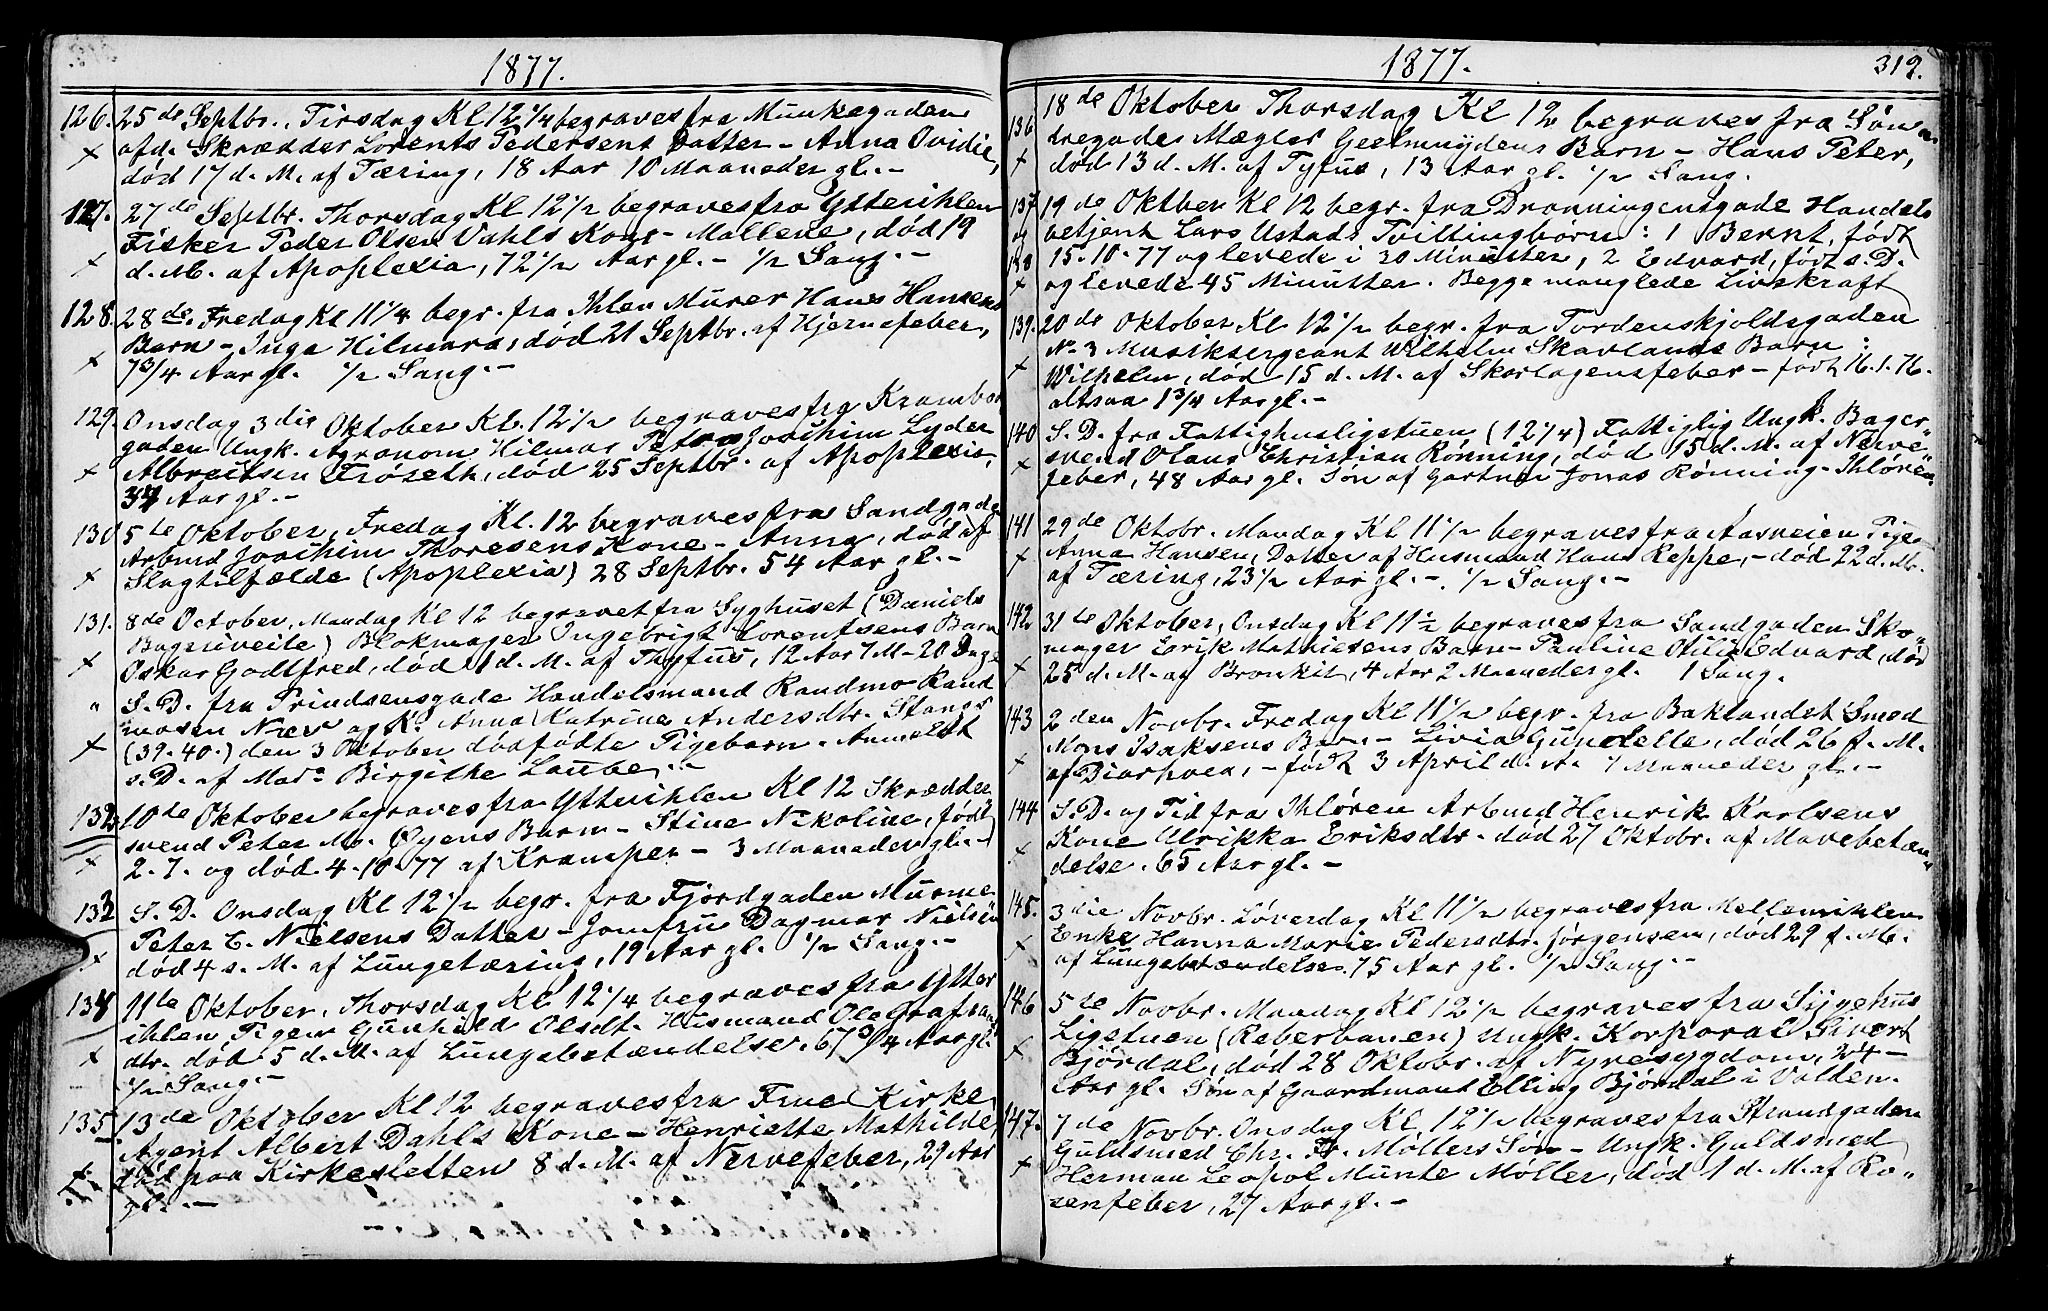 1877.
126. 25de Septbr., Tirsdag Kl 12 1/4 begraves fra Munkegaden
afd. Skrædder Lorents Pedersens Datter - Anna Ovidie,
død 17 d. M. af Tæring, 18 Aar 10 Maaneder gl. -
127. 27de Septbr. Thorsdag Kl 12 1/2 begraves fra Ytterihlen
Fisker Peder Olsen Vahls Kone - Mallene, død 19
d. M. af Apoplexia, 72 1/2 Aar gl. - 1/2 Sang. -
128. 28de Fredag Kl 11 1/4 begr. fra Ihlen Murer Hans Hansens
Barn - Inga Hilmara, død 21 Septbr. af Hjernefeber,
7 3/4 Aar gl. 1/2 Sang. -
129. Onsdag 3die Oktober Kl. 12 1/2 begraves fra Krambod
gaden Ungk. Agronom Hilmar Petter Joachim Lyder
Albreitsen Frøseth, død 25 Septbr. af Apoplexia,
34 Aar gl. -
130 5te Oktober, Fredag Kl. 12 begraves fra Sandgaden
Arbmd Joachim Thoresens Kone - Anna, død af
Slagtilfælde (Apoplexia) 28 Septbr. 54 Aar gl. -
131. 8de October, Mandag Kl 12 begravet fra Syghuset (Daniels
Bageriveite) Blokmager Ingebrigt Lorentsens Barn
Oskar Godtfred, død 1 d. M. af Thyfus, 12 Aar 7 M - 20 Dage
" S. D. fra Prindsensgade Handelsmand Randmo Rand
mosen Næv og K. Anna Katrine Andersdtr. Stangs
(39-40.) den 3 Oktober dødfødte Pigebarn. Anmeldt
s. D. af Mad. Birgitke Laube. -
132 10de Oktober begraves fra Ytterihlen Kl 12 Skrædder
svend Peter M. Øyens Barn - Stine Nikoline, født
2. 7. og død 4. 10 77 af Kramper - 3 Maaneder gl. -
133 S. D. Onsdag Kl 12 1/2 begr. fra Fjordgaden Murme
Peter C. Nielsens Datter - Jomfru Dagmar Nielsen
død 4 s. M. af Lungetæring, 19 Aar gl. 1/2 Sang. -
134 11te Oktober, Thorsdag Kl 12 1/4 begraves fra Ytter
ihlen Pigen Gunhild Olsdt. Husmand Ole Grafran
dtr. død 5 d. M. af Lungebetændelse. 67 3/4 Aar gl.
1/2 Sang. -
135 13de Oktober Kl 12 begraves fra Frue Kirke
Agent Albert Dahls Kone - Henriette Mathilde
død paa Kirkesletten 8 d. M. af Nervefeber, 29 Aar
gl. -
1877.
319.
136 18de Oktober Thorsdag Kl 12 begraves fra Søn
dregades Mægler Geelmuydens Barn - Hans Peter,
død 13 d. M. af Tyfus, 13 Aar gl. 1/2 Sang.
137 19de Oktber Kl 12 begr. fra Dronningensgade Handels
og betjent Lars Ustads Tvillingbørn: 1 Bernt, født
138 15-10-77 og levede i 30 Minutter, 2 Edvard, født s. D.
og levede 45 Minutter. Begge manglede Livskraft
139. 20de Oktober Kl 12 1/2 begr. fra Tordenskjoldsgaden
No 3 Musiksergeant Wilhelm Skavlands Barn:
Wilhelm, død 15 d. M. af Skarlagensfeber - født 16. 1. 76.
altsaa 1 3/4 Aar gl. -
140 S. D. fra Fattighusligstuen (12 1/4) Fattiglig Ungk. Bager-
svend Olaus Christian Rønning, død 15 d. M. af Nerve-
feber, 48 Aar gl. Søn af Gartner Jonas Rønning - Ihløren
141 29de Oktobr. Mandag Kl 11 1/2 begraves fra Aasveien Pige
Anna Hansen, Datter af Husmand Hans Reppe, - død 22 d. M.
af Tæring, 23 1/2 Aar gl. - 1/2 Sang. -
142 31te Oktober, Onsdag Kl 11 1/2 begraves fra Sandgaden Sko-
mager Erik Mathiesens Barn - Pauline Otilie Edvard, død
25 d. M. af Bronkit, 4 Aar 2 Maaneder gl. 1 Sang.
143 2den Novbr. Fredag Kl 11 1/2 begr. fra Baklandet Smed
Mons Isaksens Barn - Livia Gundelle, død 26 f. M.
af Diarhoea, - født 3 April d. A. 7 Maaneder gl. -
144 S. D. og Tid fra Ihløren Arbmd Henrik Karlsens
Kone Ulrikka Eriksdtr - død 27 Oktobr. af Mavebetæn
delse. 65 Aar gl. -
145. 3die Novbr. Løverdag Kl 11 1/2 begraves fra Mellemihlen
Enke Hanna Marie Pedersdtr. Jørgensen, død 29 f. M.
af Lungebetændelse 75 Aar gl. 1/2 Sang. -
146 5te Novbr. Mandag Kl 12 1/2 begraves fra Sygehus
Ligstuen (Reberbanen) Ungk. Korporal Sivert
Bjørdal, død 28 Oktobr. af Nyresygdom, 24 -
Aar gl. Søn af Gaardmand Elling Bjørdal i Volden.
147. 7de Novbr. Onsdag Kl 12 1/2 begraves fra Strandgaden
Guldsmed Chr. Fr. Møllers Søn - Ungk. Guldsmed
Herman Leopol Munte Møller, død 1 d. M. af Ro-
senfeber, 27 Aar gl. -